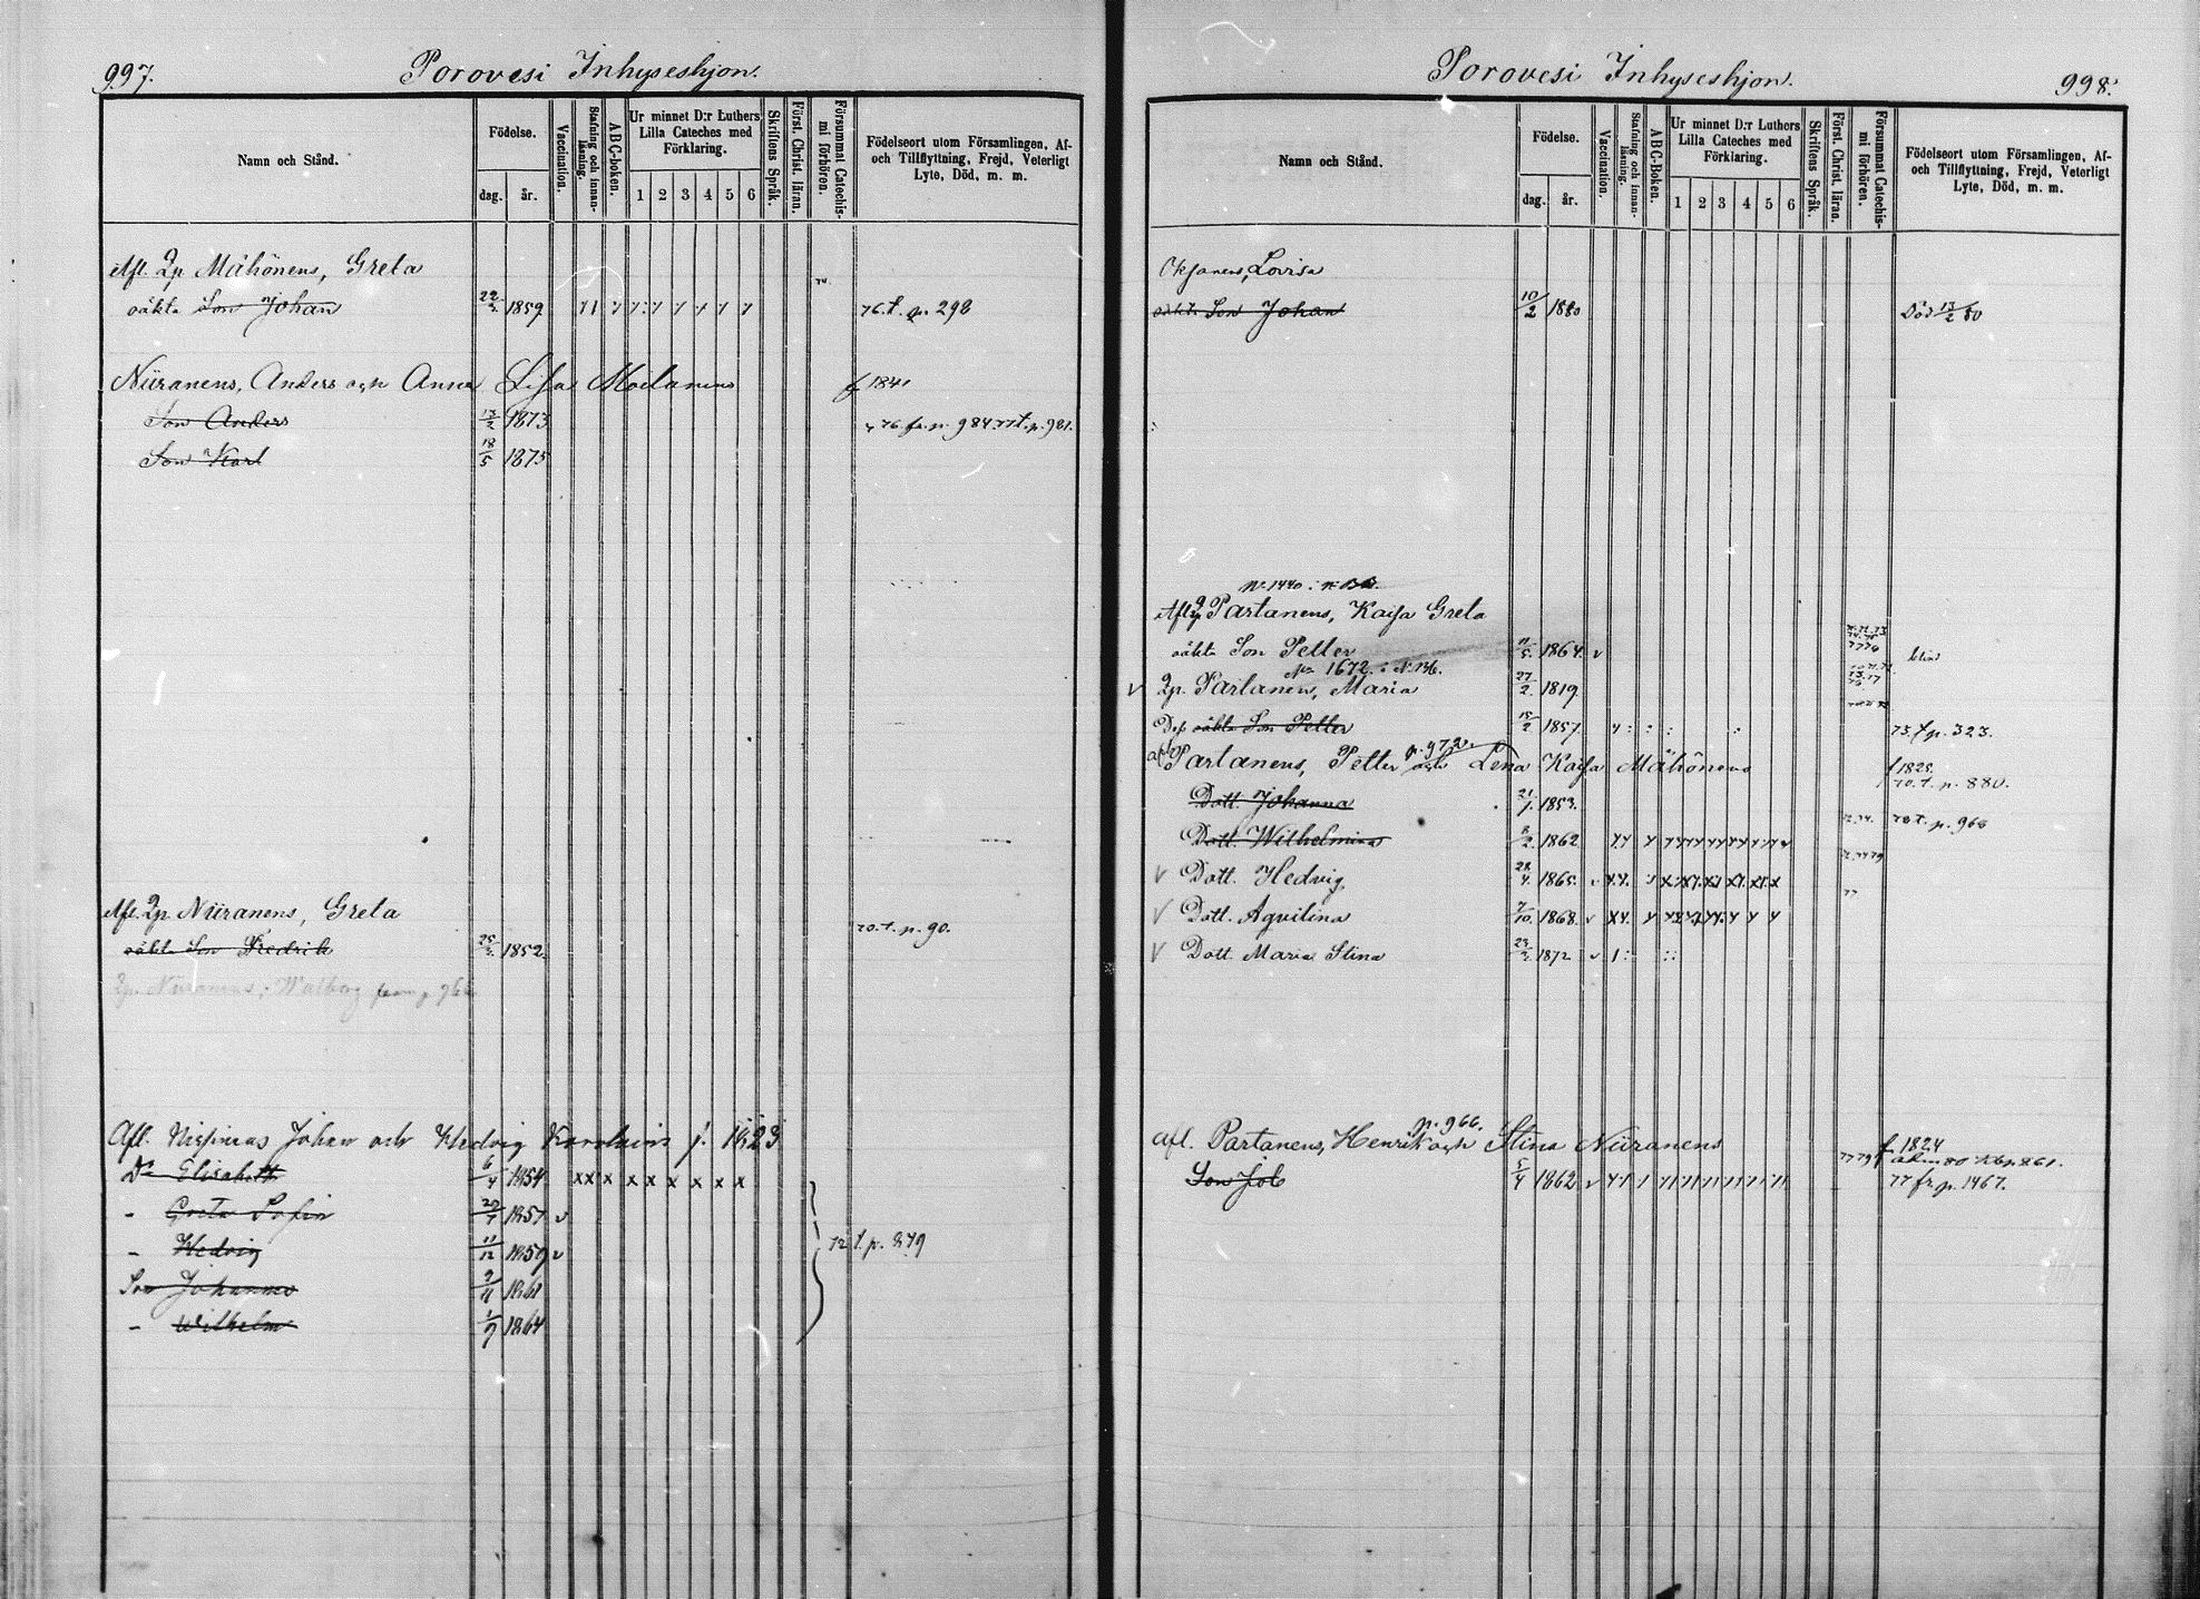 997.
Porovesi Inhyseshjon.
Namn och Stånd.
Födelse.
dag.
år.
Vaccination.
Stafning och innan-läsning.
ABC-boken.
Ur minnet D:r Luthers Lilla Cateches med Förklaring.
1 2 3 4 5 6
Skriftens Språk.
Först. Christ. läran.
Försummat Catechis-mi förhören.
Födelseort utom Församlingen, Af- och Tillflyttning, Frejd, Veterligt Lyte, Död, m. m.
Afl. Qp. Mähönens, Greta
oäkta Son Johan 22/3 1859 76.t. p. 298
Niiranens, Anders och Anna Lisa Moilanens f 1841
Son Anders 13/2 1873 76.fr.p. 984.77t.p.981.
Son Karl 18/5 1875
Afl. Qp. Niiranens, Greta
oäkta Son Fredrik 25/3 1852 70.t.p.90.
Qp. Niiranens, Walborg från p. 966
Afl. Nissinens Johan och Hedvig Karolina f. 1823
Dr Elisabeth 6/4 1854 x x x x x x x x x
- Greta Sofia 20/7 1857 v
- Hedvig 11/12 1859 v 72 t.p. 879
Son Johannes 9/11 1861
- Wilhelm 1/9 1864
Porovesi Inhyseshjon.
998.
Namn och Stånd.
Födelse.
dag.
år.
Vaccination.
Stafning och innan-läsning.
ABC-Boken.
Ur minnet D:r Luthers Lilla Cateches med Förklaring.
1 2 3 4 5 6
Skriftens Språk.
Först. Christ. läran.
Försummat Catechis-mi förhören.
Födelseort utom Församlingen, Af- och Tillflyttning, Frejd, Veterligt Lyte, Död, m. m.
Oksanens, Lovisa
oäkta Son Johan 10/2 1880 Död 13/2 80
N:o 1440
Afl. Qp Partanens, Kaisa Greta
oäkta Son Petter 11/5 1864 v blind
N:o 1672
v Qp. Partanen, Maria 27/2 1819.
Des oäkta Son Petter 15/2 1857 73.t.p. 323.
p. 972.
afl Partanens, Petter och Lena Kaisa Mähönens f 1828.
70.t.p. 880.
Dott. Johanna 21/1 1853.
Dott. Wilhelmina 8/2 1862 78t. p. 968
v Dott. Hedvig 28/4 1865. v
v Dott. Agvilina 7/10 1868. v
v Dott. Maria Stina 23/3 1872 v
p. 966.
Afl. Partanens, Henrik och Stina Niiranens f. 1824
Son Job 5/4 1862 v 77 79
77 fr.p. 1467.